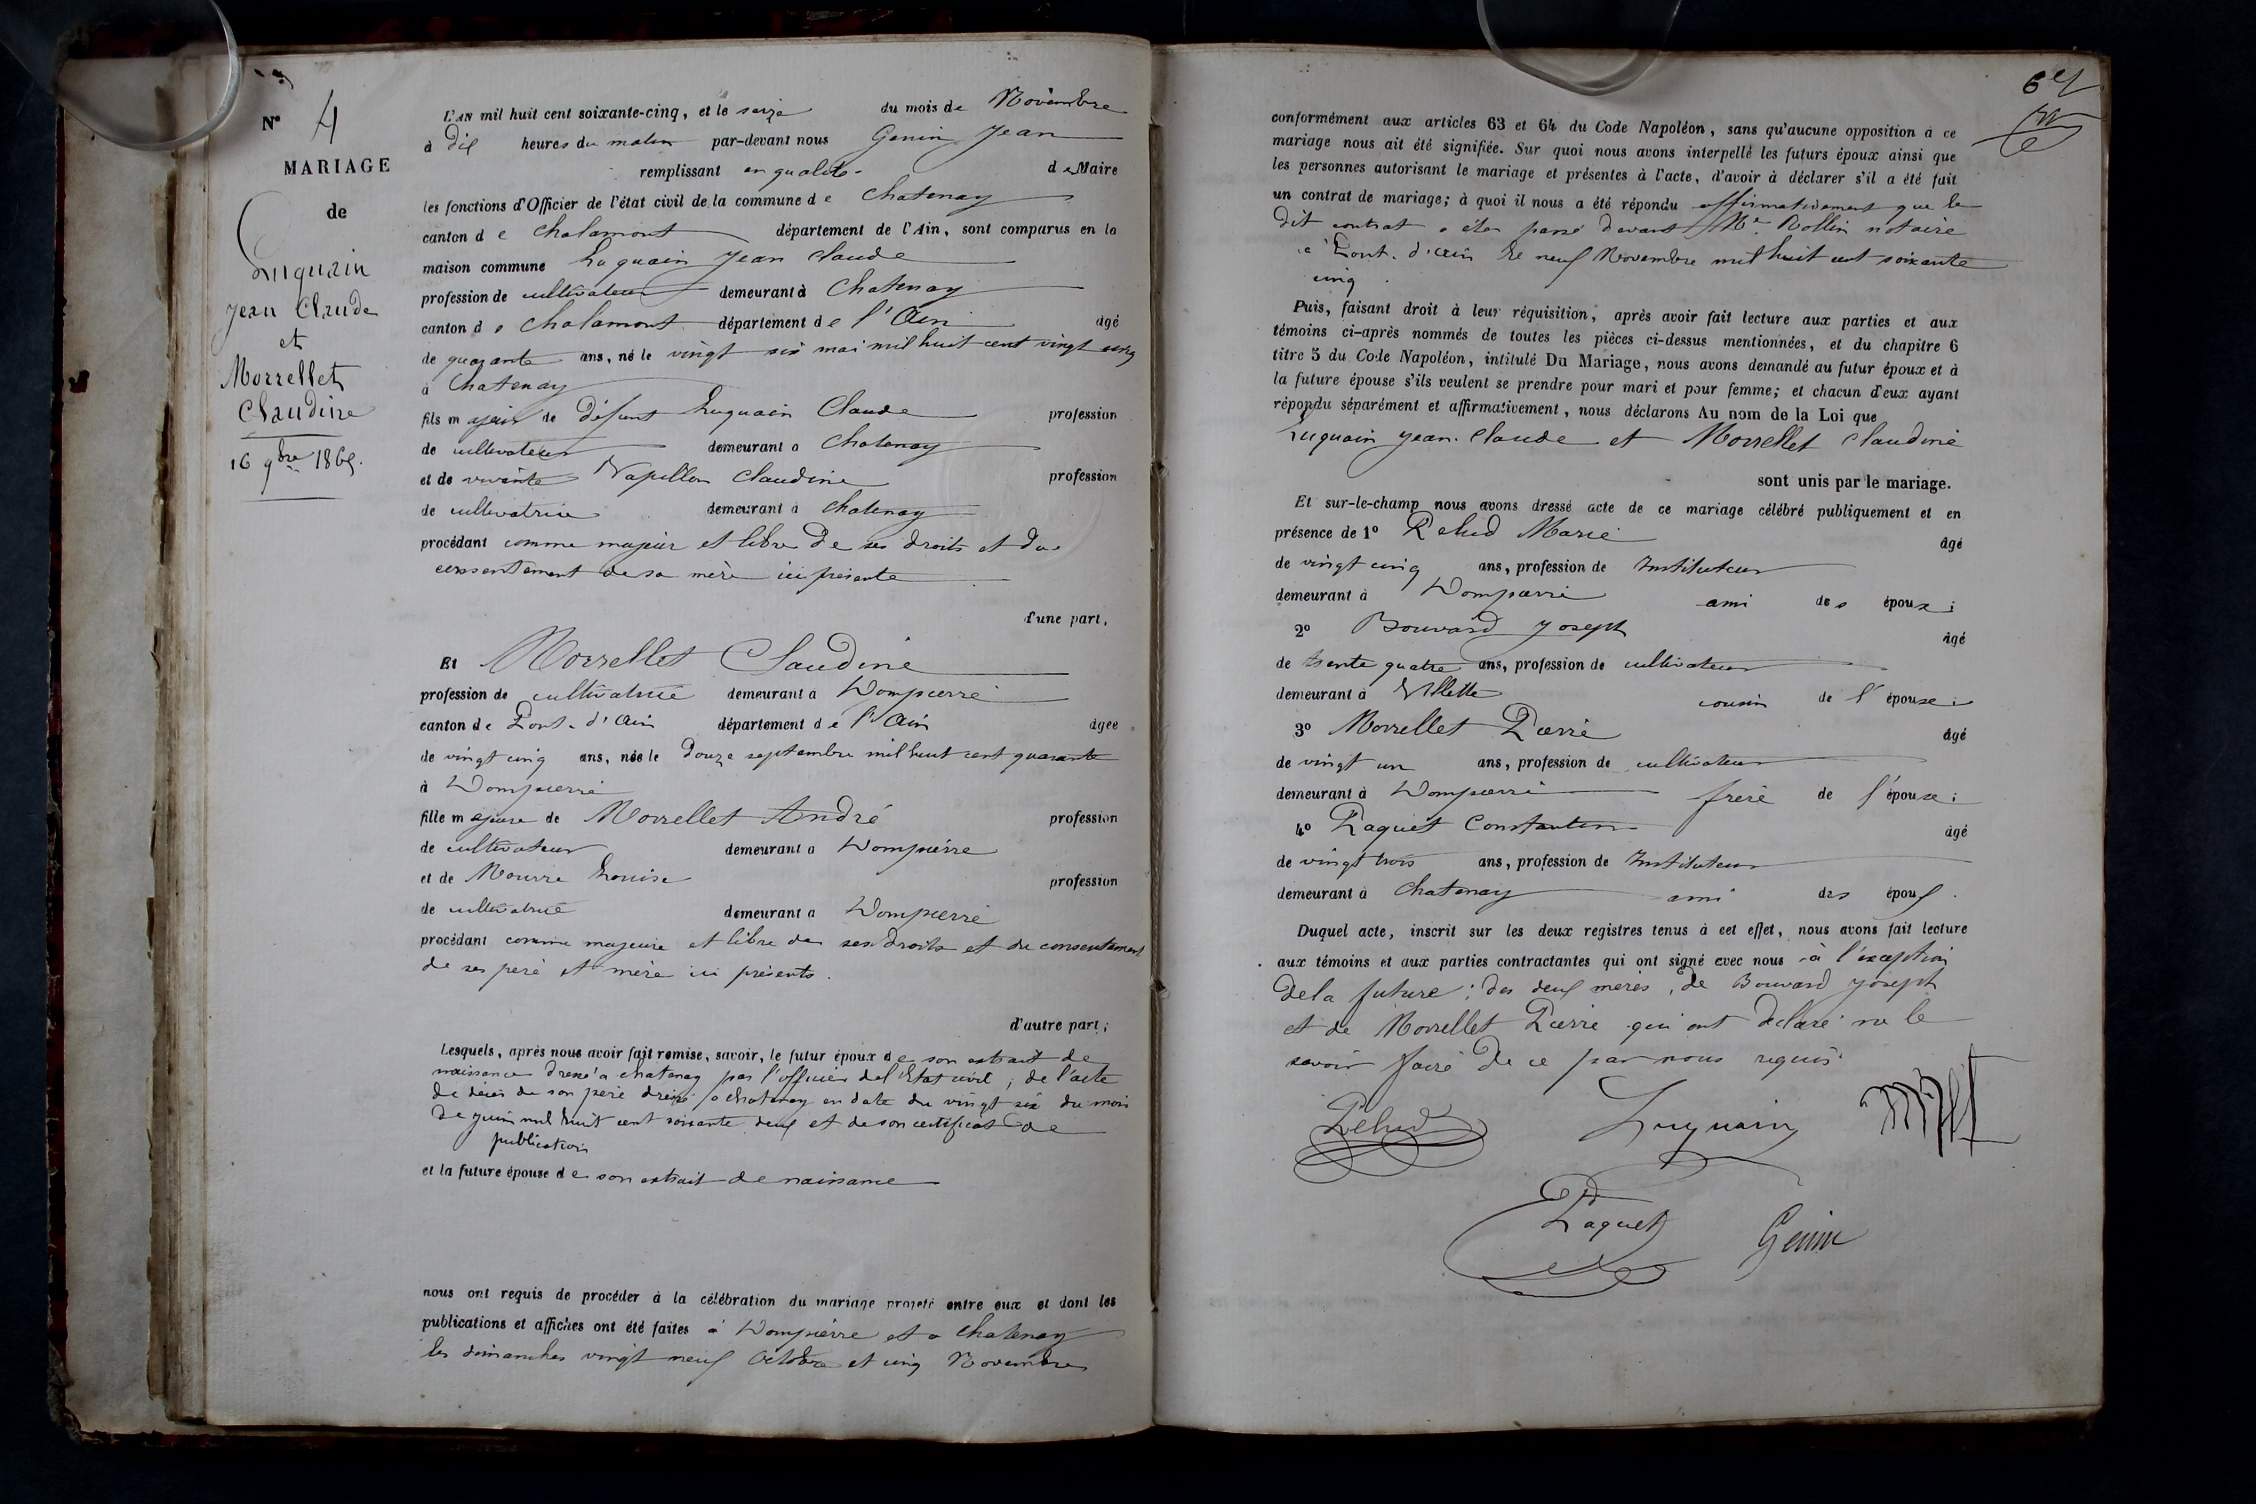 N° 4
MARIAGE
de
Luquain
Jean Claude
et
Morrellet
Claudine
16 9bre 1865.
L'AN mil huit cent soixante-cinq, et le seize du mois de Novembre
à dix heures du matin par-devant nous Genin Jean
remplissant en qualité de Maire
les fonctions d'Officier de l'état civil de la commune de Chatenay
canton de Chalamont département de l'Ain, sont comparus en la
maison commune Luquain Jean Claude
profession de cultivateur demeurant à Chatenay
canton de Chalamont département de l'Ain âgé
de quarante ans, né le vingt six mai mil huit cent vingt cinq
à Chatenay
fils majeur de défunt Luquain Claude profession
de cultivateur demeurant à Chatenay
et de vivante Papillon Claudine profession
de cultivatrice demeurant à Chatenay
procédant comme majeur et libre de ses droits et du
consentement de sa mère ici présente
d'une part,
Et Morrellet Claudine
profession de cultivatrice demeurant à Dompierre
canton de Pont-d'Ain département de l'Ain âgée
de vingt cinq ans, née le douze septembre mil huit cent quarante
à Dompierre
fille majeure de Morrellet André profession
de cultivateur demeurant à Dompierre
et de Mourre Louise profession
de cultivatrice demeurant à Dompierre
procédant comme majeure et libre de ses droits et du consentement
de ses père et mère ici présents.
d'autre part;
Lesquels, après nous avoir fait remise, savoir, le futur époux de son extrait de
naissance dressé à chatenay par l'officier de l'Etat civil; de l'acte
de décès de son père dressé à chatenay en date du vingt six du mois
de juin mil huit cent soixante deux et de son certificat de
publication
et la future épouse de son extrait de naissance
nous ont requis de procéder à la célébration du mariage projeté entre eux et dont les
publications et affiches ont été faites à Dompierre et à Chatenay
les dimanches vingt neuf Octobre et cinq Novembre
conformément aux articles 63 et 64 du Code Napoléon, sans qu'aucune opposition à ce
mariage nous ait été signifiée. Sur quoi nous avons interpellé les futurs époux ainsi que
les personnes autorisant le mariage et présentes à l'acte, d'avoir à déclarer s'il a été fait
un contrat de mariage; à quoi il nous a été répondu affirmativement que le
dit contrat a été passé devant Me. Rollin notaire
à Pont-d'Ain le neuf Novembre mil huit cent soixante
cinq.
Puis, faisant droit à leur réquisition, après avoir fait lecture aux parties et aux
témoins ci-après nommés de toutes les pièces ci-dessus mentionnées, et du chapitre 6
titre 5 du Code Napoléon, intitulé Du Mariage, nous avons demandé au futur époux et à
la future épouse s'ils veulent se prendre pour mari et pour femme; et chacun d'eux ayant
répondu séparément et affirmativement, nous déclarons Au nom de la Loi que
Luquain Jean-Claude et Morrellet Claudine
sont unis par le mariage.
Et sur-le-champ nous avons dressé acte de ce mariage célébré publiquement et en
présence de 1° Pelud Marie âgé
de vingt cinq ans, profession de Instituteur
demeurant à Dompierre ami des époux;
2° Bouvard Joseph âgé
de trente quatre ans, profession de cultivateur
demeurant à Villette cousin de l'épouse;
3° Morrellet Pierre âgé
de vingt un ans, profession de cultivateur
demeurant à Dompierre frère de l'épouse;
4° Paquet Constantin âgé
de vingt trois ans, profession de Instituteur
demeurant à Chatenay ami des époux.
Duquel acte, inscrit sur les deux registres tenus à cet effet, nous avons fait lecture
aux témoins et aux parties contractantes qui ont signé avec nous à l'exception
de la future; des deux mères, de Bouvard Joseph
et de Morrellet Pierre qui ont déclaré ne le
savoir faire de ce par nous requis.
Pelud Luquain
Paquet Genin